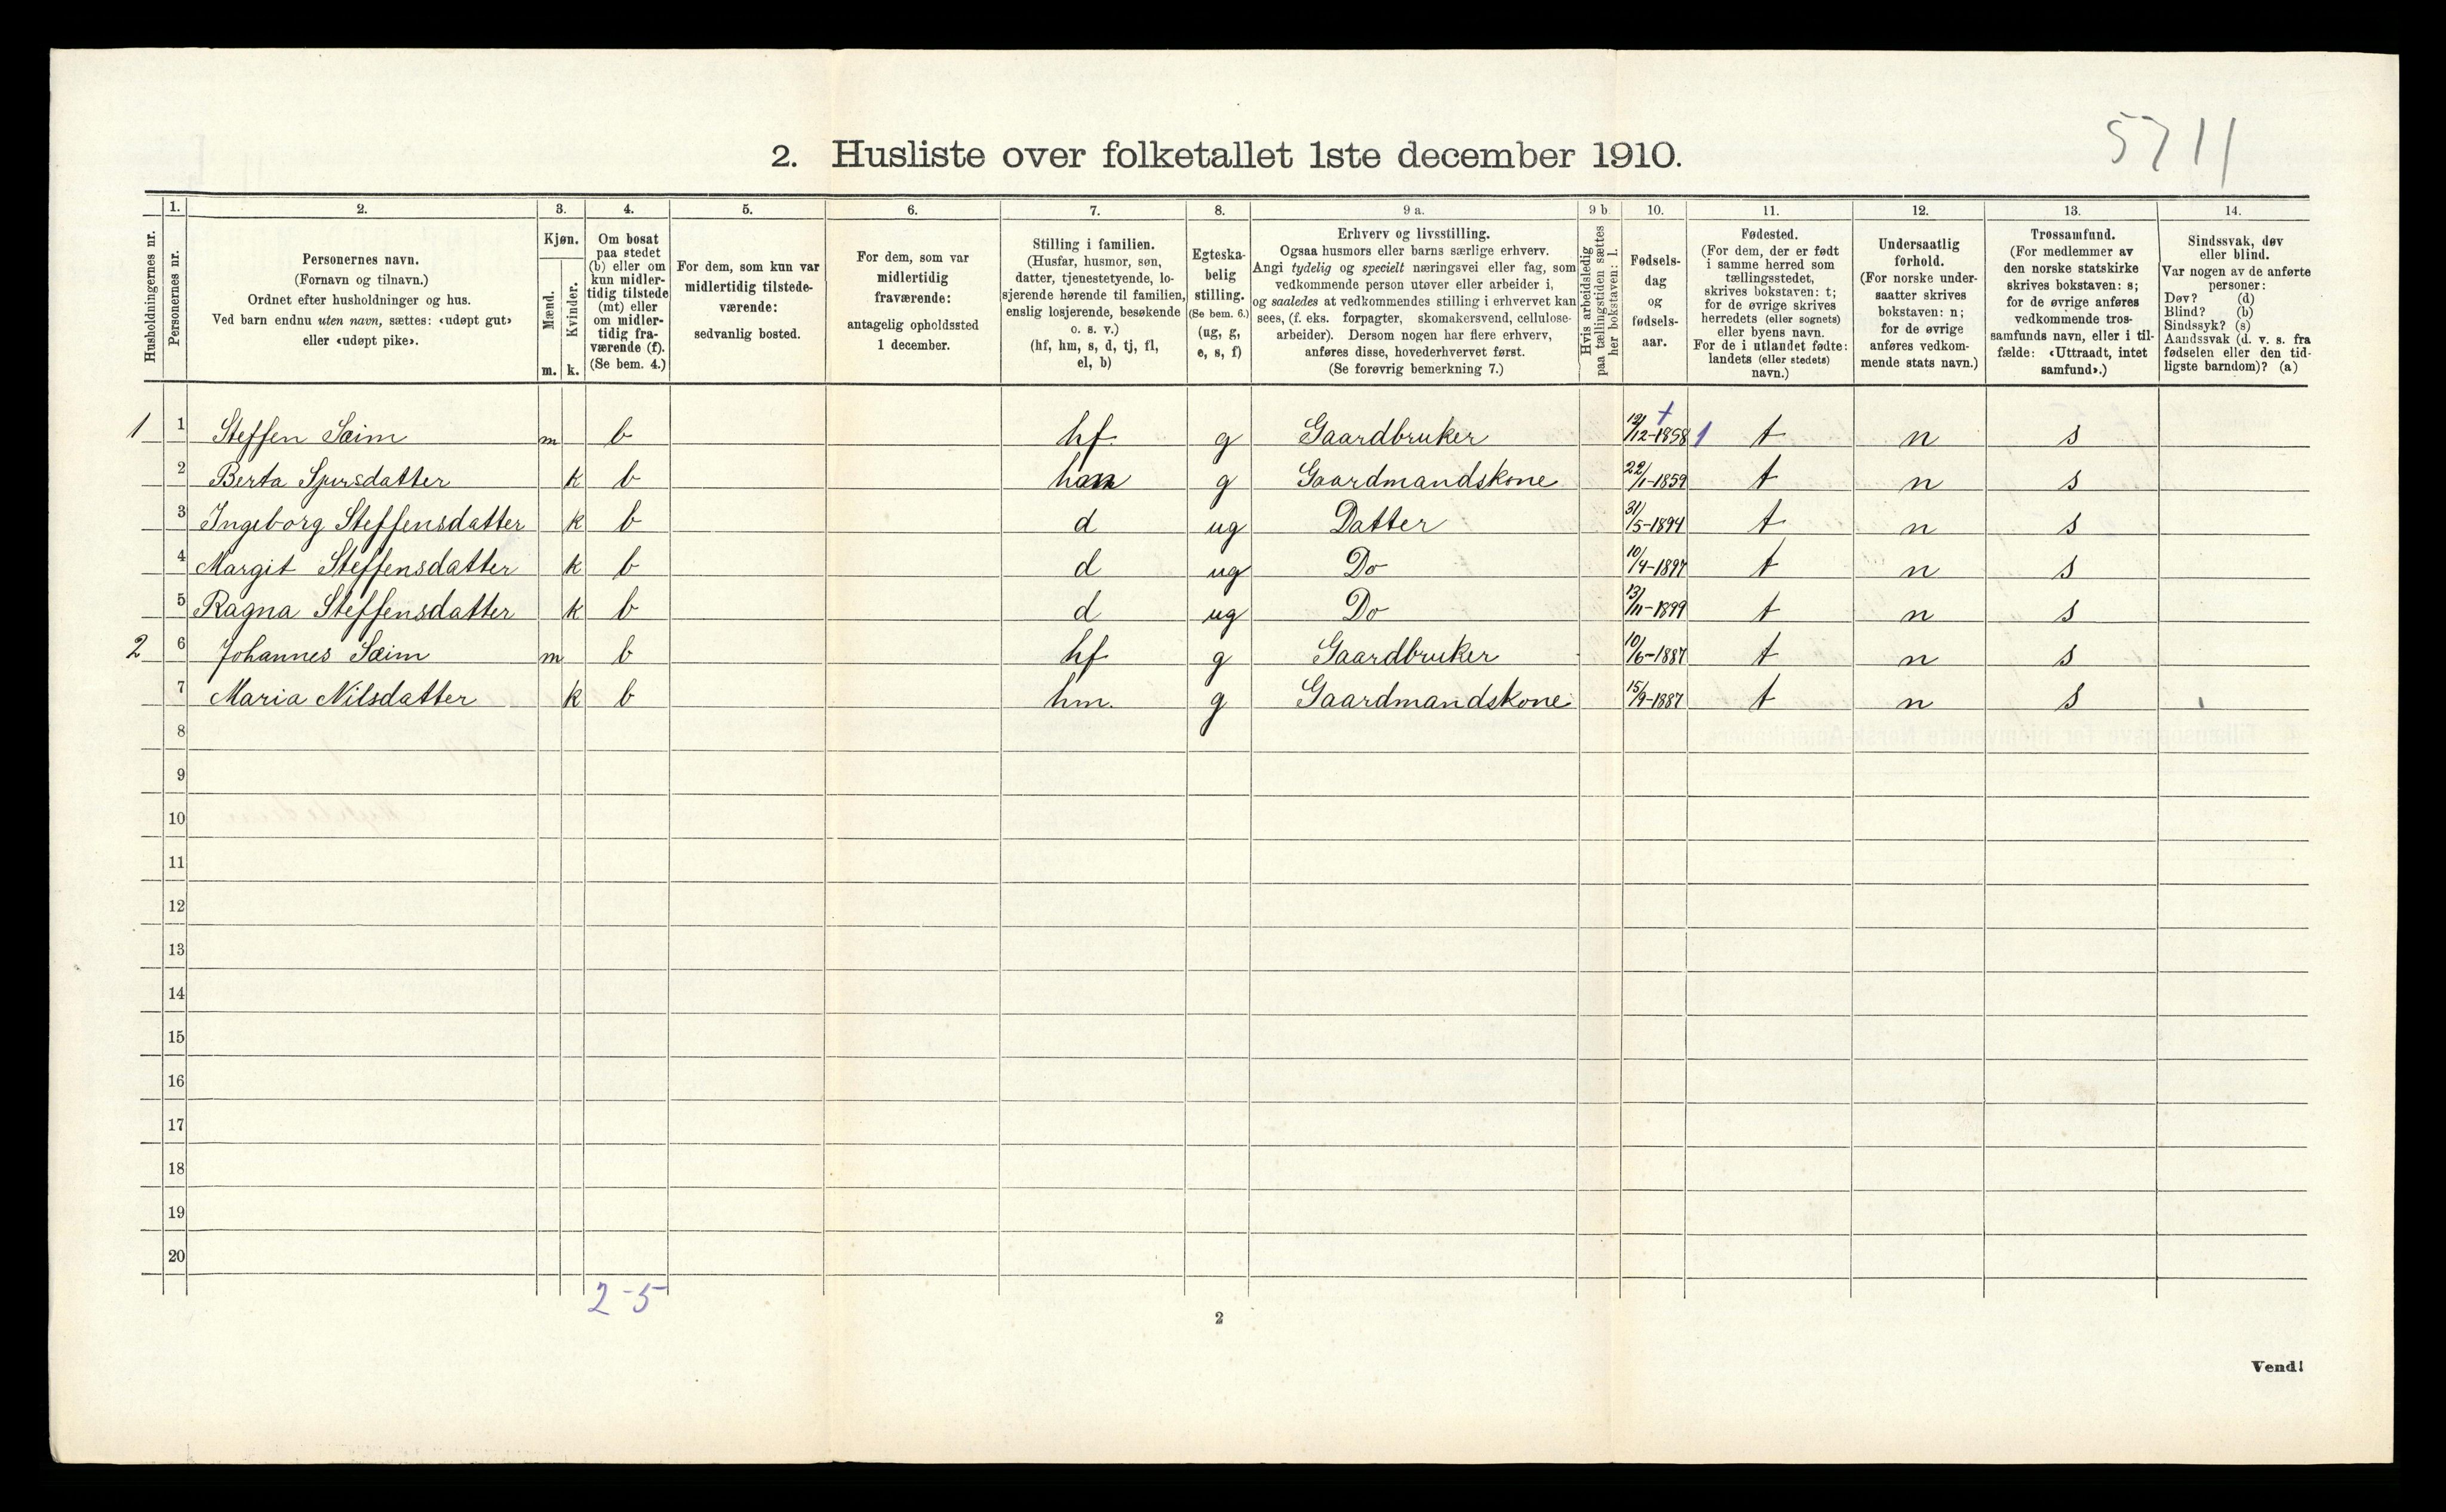 5711
2. Husliste over folketallet 1ste december 1910.
Husholdningernes nr.
1.
Personernes nr.
2.
Personernes navn.
(Fornavn og tilnavn.)
Ordnet efter husholdninger og hus.
Ved barn endnu uten navn, sættes: «udøpt gut»
eller «udøpt pike».
3.
Kjøn.
Mænd.
m.
Kvinder.
k.
4.
Om bosat
paa stedet
(b) eller om
kun midler-
tidig tilstede
(mt) eller
om midler-
tidig fra-
værende (f).
(Se bem. 4.)
5.
For dem, som kun var
midlertidig tilstede-
værende:
sedvanlig bosted.
6.
For dem, som var
midlertidig
fraværende:
antagelig opholdssted
1 december.
7.
Stilling i familien.
(Husfar, husmor, søn,
datter, tjenestetyende, lo-
sjerende hørende til familien,
enslig losjerende, besøkende
o. s. v.)
(hf, hm, s, d, tj, fl,
el, b)
8.
Egteska-
belig
stilling.
(Se bem. 6.)
(ug, g,
e, s, f)
9 a.
Erhverv og livsstilling.
Ogsaa husmors eller barns særlige erhverv.
Angi tydelig og specielt næringsvei eller fag, som
vedkommende person utøver eller arbeider i,
og saaledes at vedkommendes stilling i erhvervet kan
sees, (f. eks. forpagter, skomakersvend, cellulose-
arbeider). Dersom nogen har flere erhverv,
anføres disse, hovederhvervet først.
(Se forøvrig bemerkning 7.)
9 b
Hvis arbeidsledig
paa tællingstiden sættes
her bokstaven: l.
10.
Fødsels-
dag
og
fødsels-
aar.
11.
Fødested.
(For dem, der er født
i samme herred som
tællingsstedet,
skrives bokstaven: t;
for de øvrige skrives
herredets (eller sognets)
eller byens navn.
For de i utlandet fødte:
landets (eller stedets)
navn.)
12.
Undersaatlig
forhold.
(For norske under-
saatter skrives
bokstaven: n;
for de øvrige
anføres vedkom-
mende stats navn.)
13.
Trossamfund.
(For medlemmer av
den norske statskirke
skrives bokstaven: s;
for de øvrige anføres
vedkommende tros-
samfunds navn, eller i til-
fælde: «Uttraadt, intet
samfund».)
14.
Sindssvak, døv
eller blind.
Var nogen av de anførte
personer:
Døv? (d)
Blind? (b)
Sindssyk? (s)
Aandssvak (d. v. s. fra
fødselen eller den tid-
ligste barndom)? (a)
1 1 Steffen Sæim m b hf g Gaardbruker 12-1858 1 t n s
2 Berta k b g Gaardmandskone 22/1-1859 t n s
3 Ingeborg Steffensdatter k b d ug Datter 31/5-1894 t n s
4 Margit Steffensdatter k b d ug Do 10/4-1897 t n s
5 Ragna Steffensdatter k b d ug Do 13/11-1899 t n s
2 6 Johannes Sæim m b hf g Gaardbruker 10/6-1887 t n s
7 Maria Nilsdatter k b hm. g Gaardmandskone 15/9-1887 t n s
8
9
10
11
12
13
14
15
16
17
18
19
20
2-5
2
Vend!